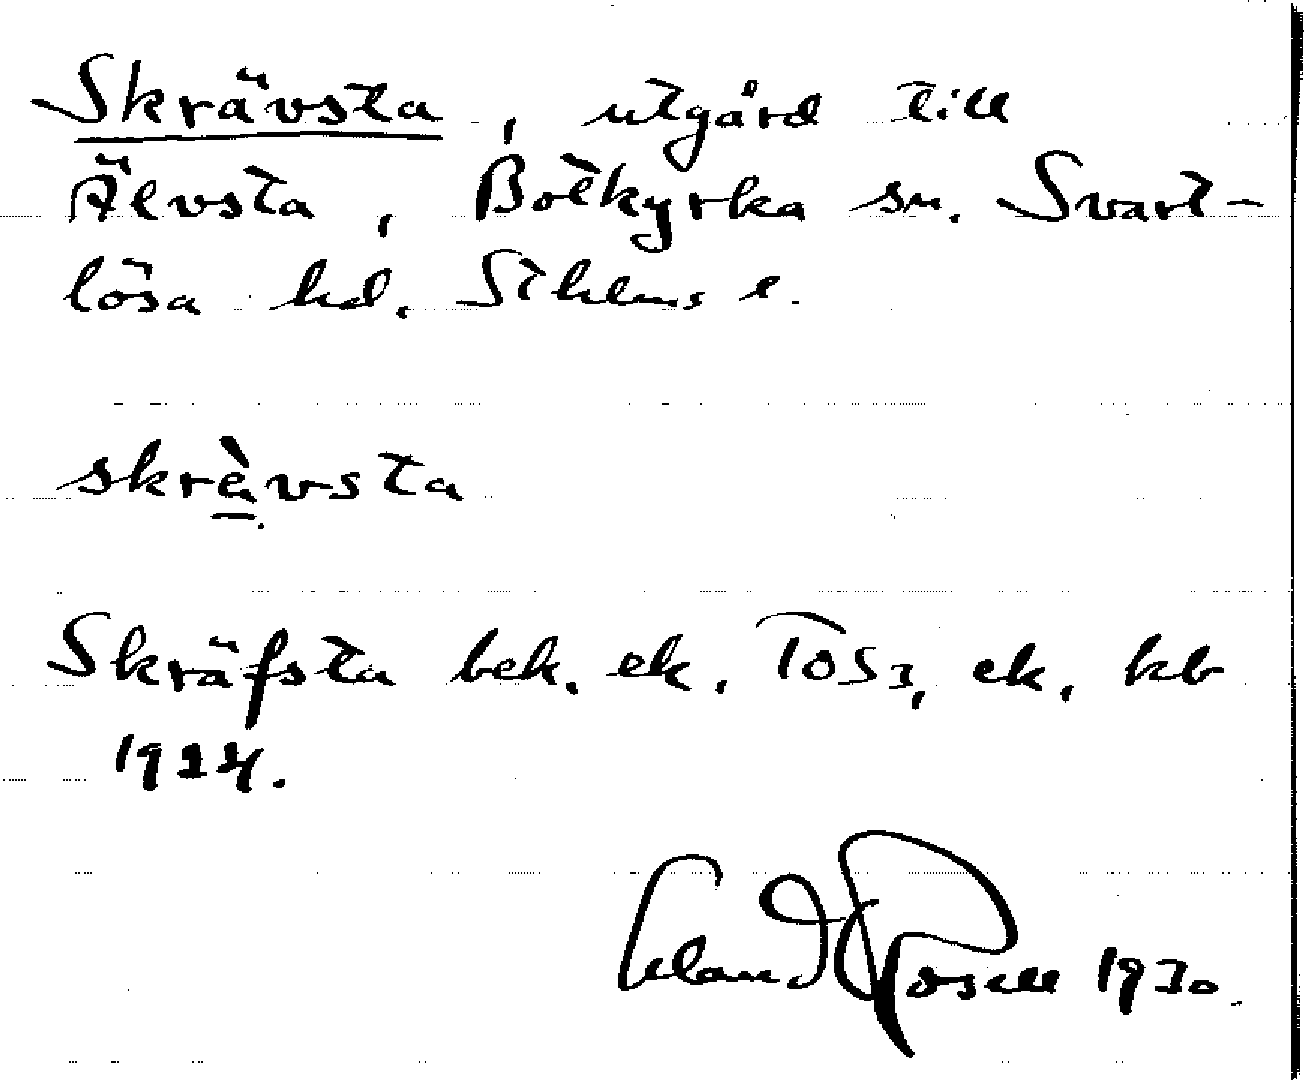 Skrävsta, utgård till
Älvsta, Botkyrka sn. Svart-
lösa hd. Sthlms l.
skrävsta
Skräfsta bek. ek. TOS3, ek, kb
1924.
Erland Rosell 1930.